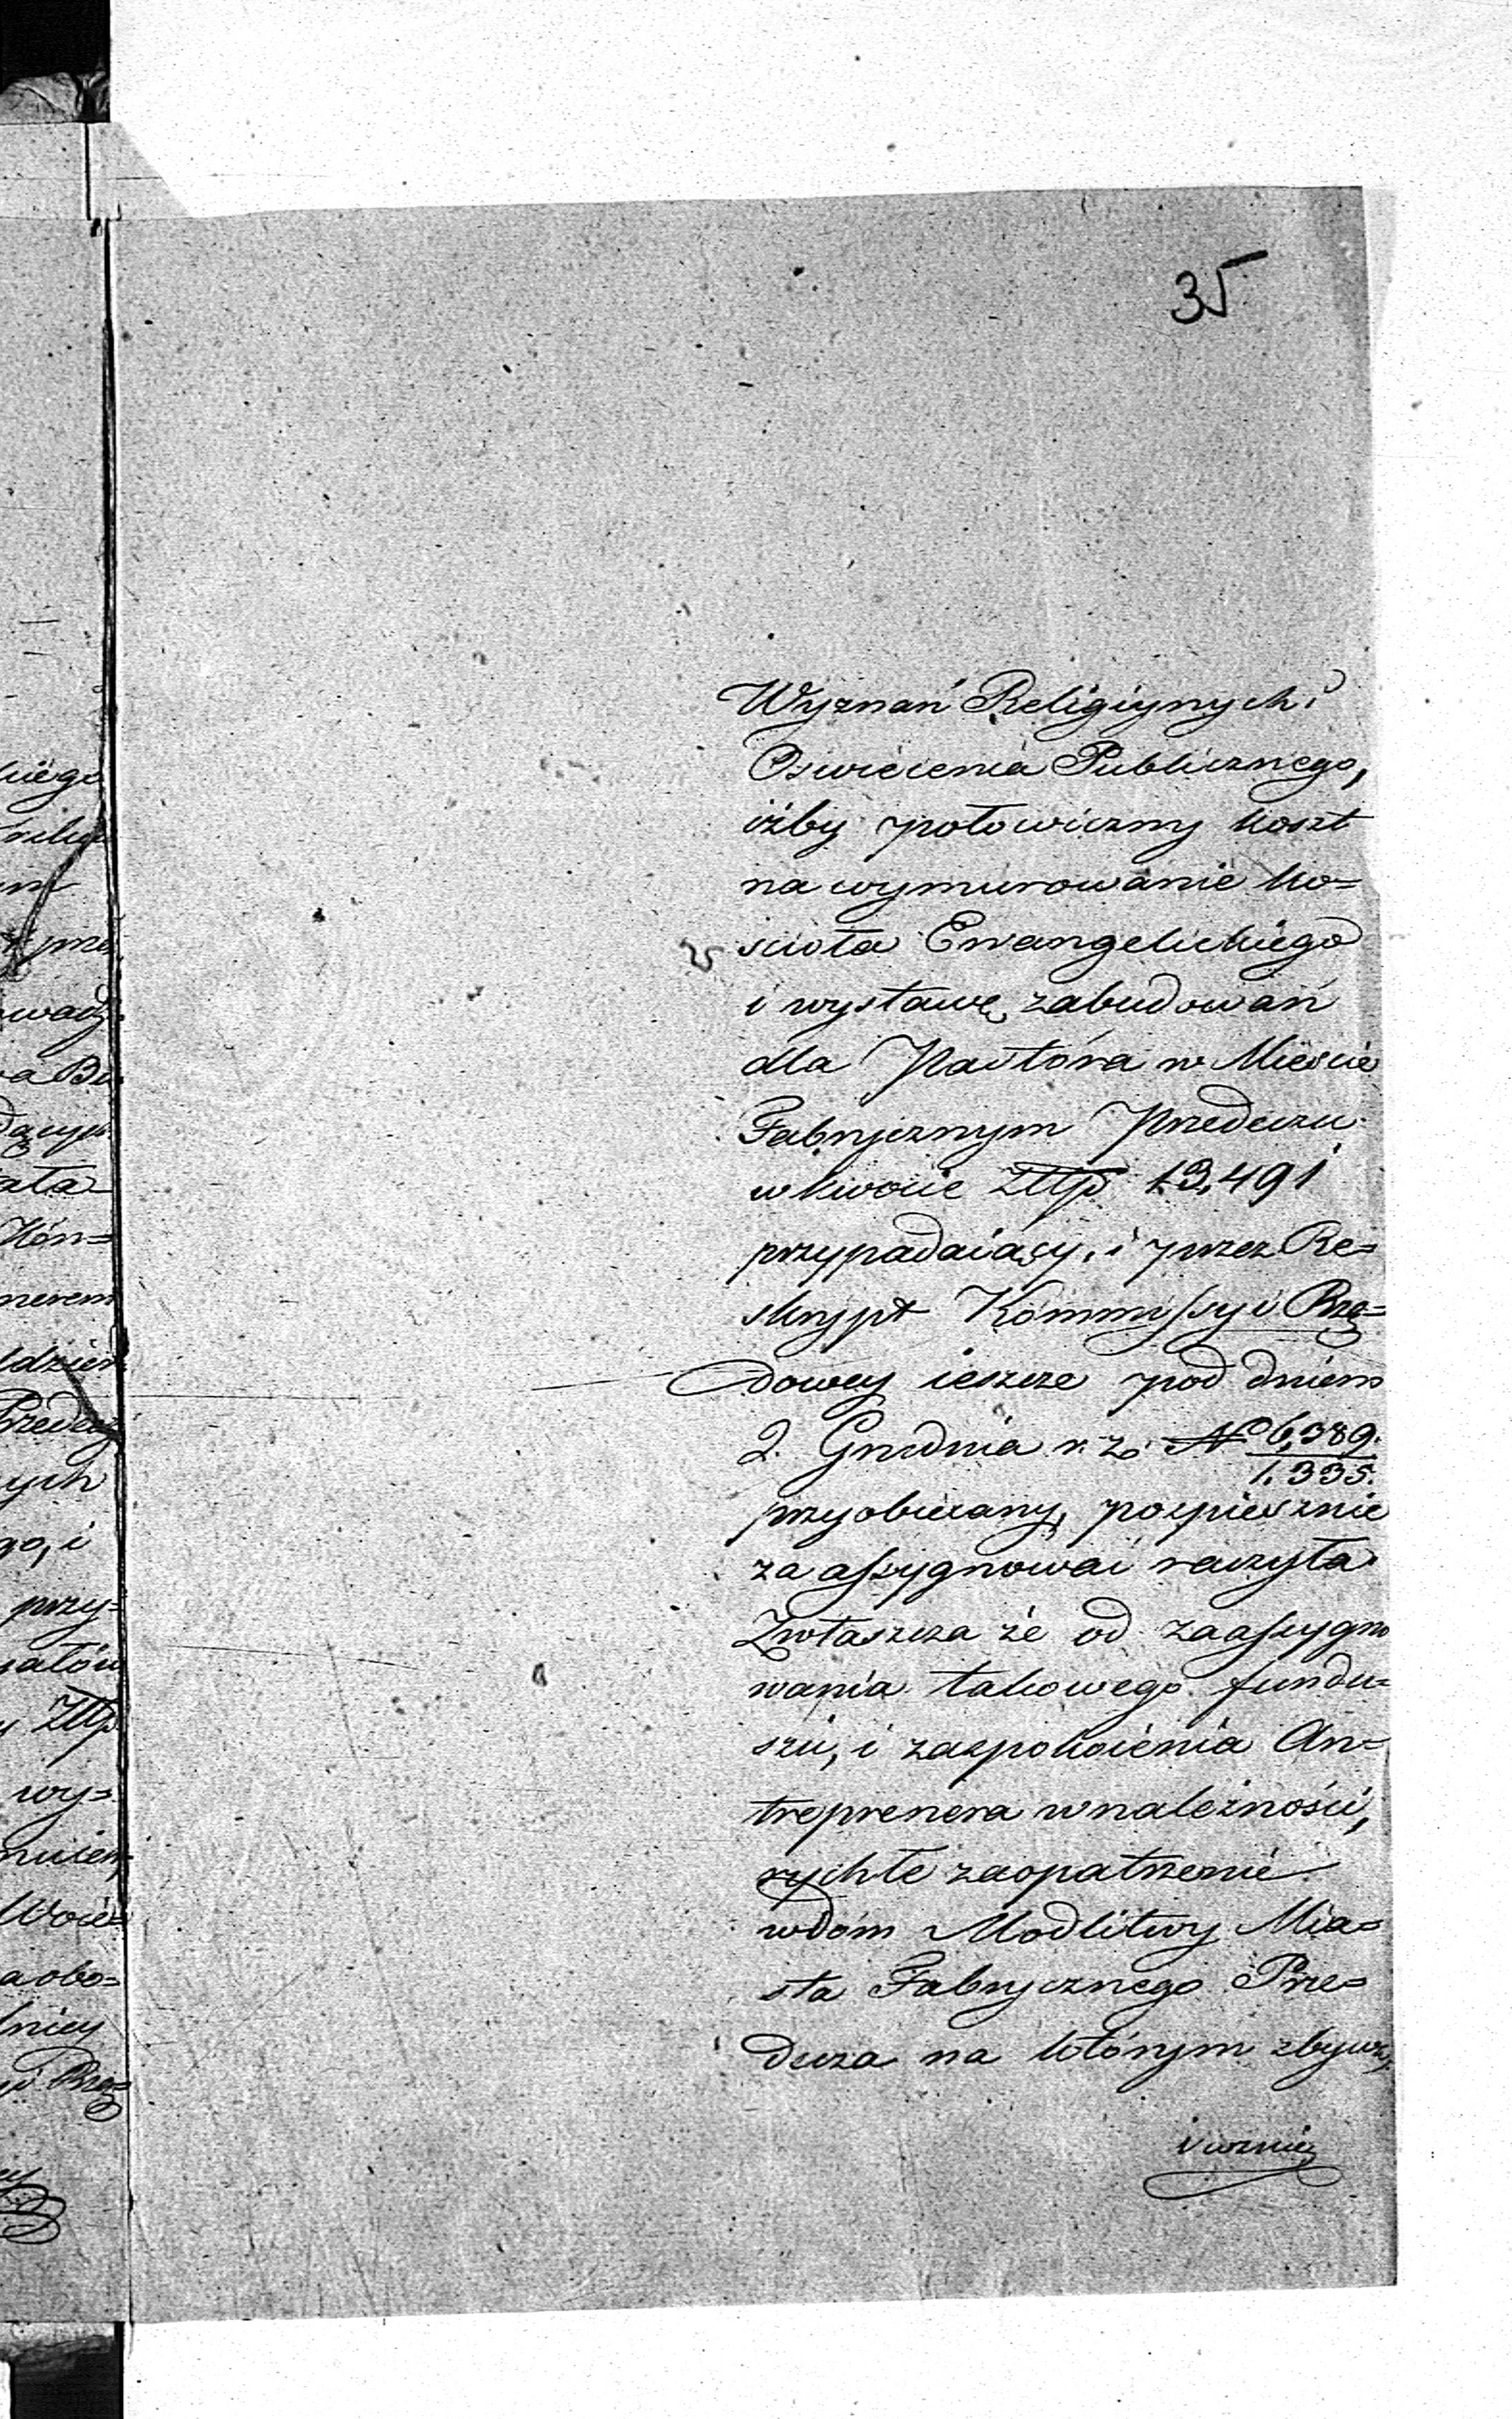 35
Wyznań Religiynych i
Oswiecenia Publicznego,
iżby połowiczny koszt
na wymurowanie ko=
scioła Ewangelickiego
i wystawę zabudowań
dla Pastora w Mieście
Fabrycznym Przedeczu
w kwocie Złtp 13,491
przypadaiący, i przez Re=
skrypt Kommissyi Rzą=
dowey ieszcze pod dniem
2. Grudnia r. z. No 6,389.
1.335.
przyobiecany, pospiesznie
zaassygnować raczyła.
Zwłaszcza że od zaassygno
wania takowego fundu=
szu, i zaspokoienia An=
treprenera w należności,
rychłe zaopatrzenie
w dóm Modlitwy Mia=
sta Fabrycznego Prze=
decza na którym zbywa,
kiego
im
prze
wadz
a Bu
dący
ała
Kón=
nerem
dzień
Przedecz
ych
go, i
przy=
iałów
Złtp
wy=
Woie=
a obo=
Rzą=